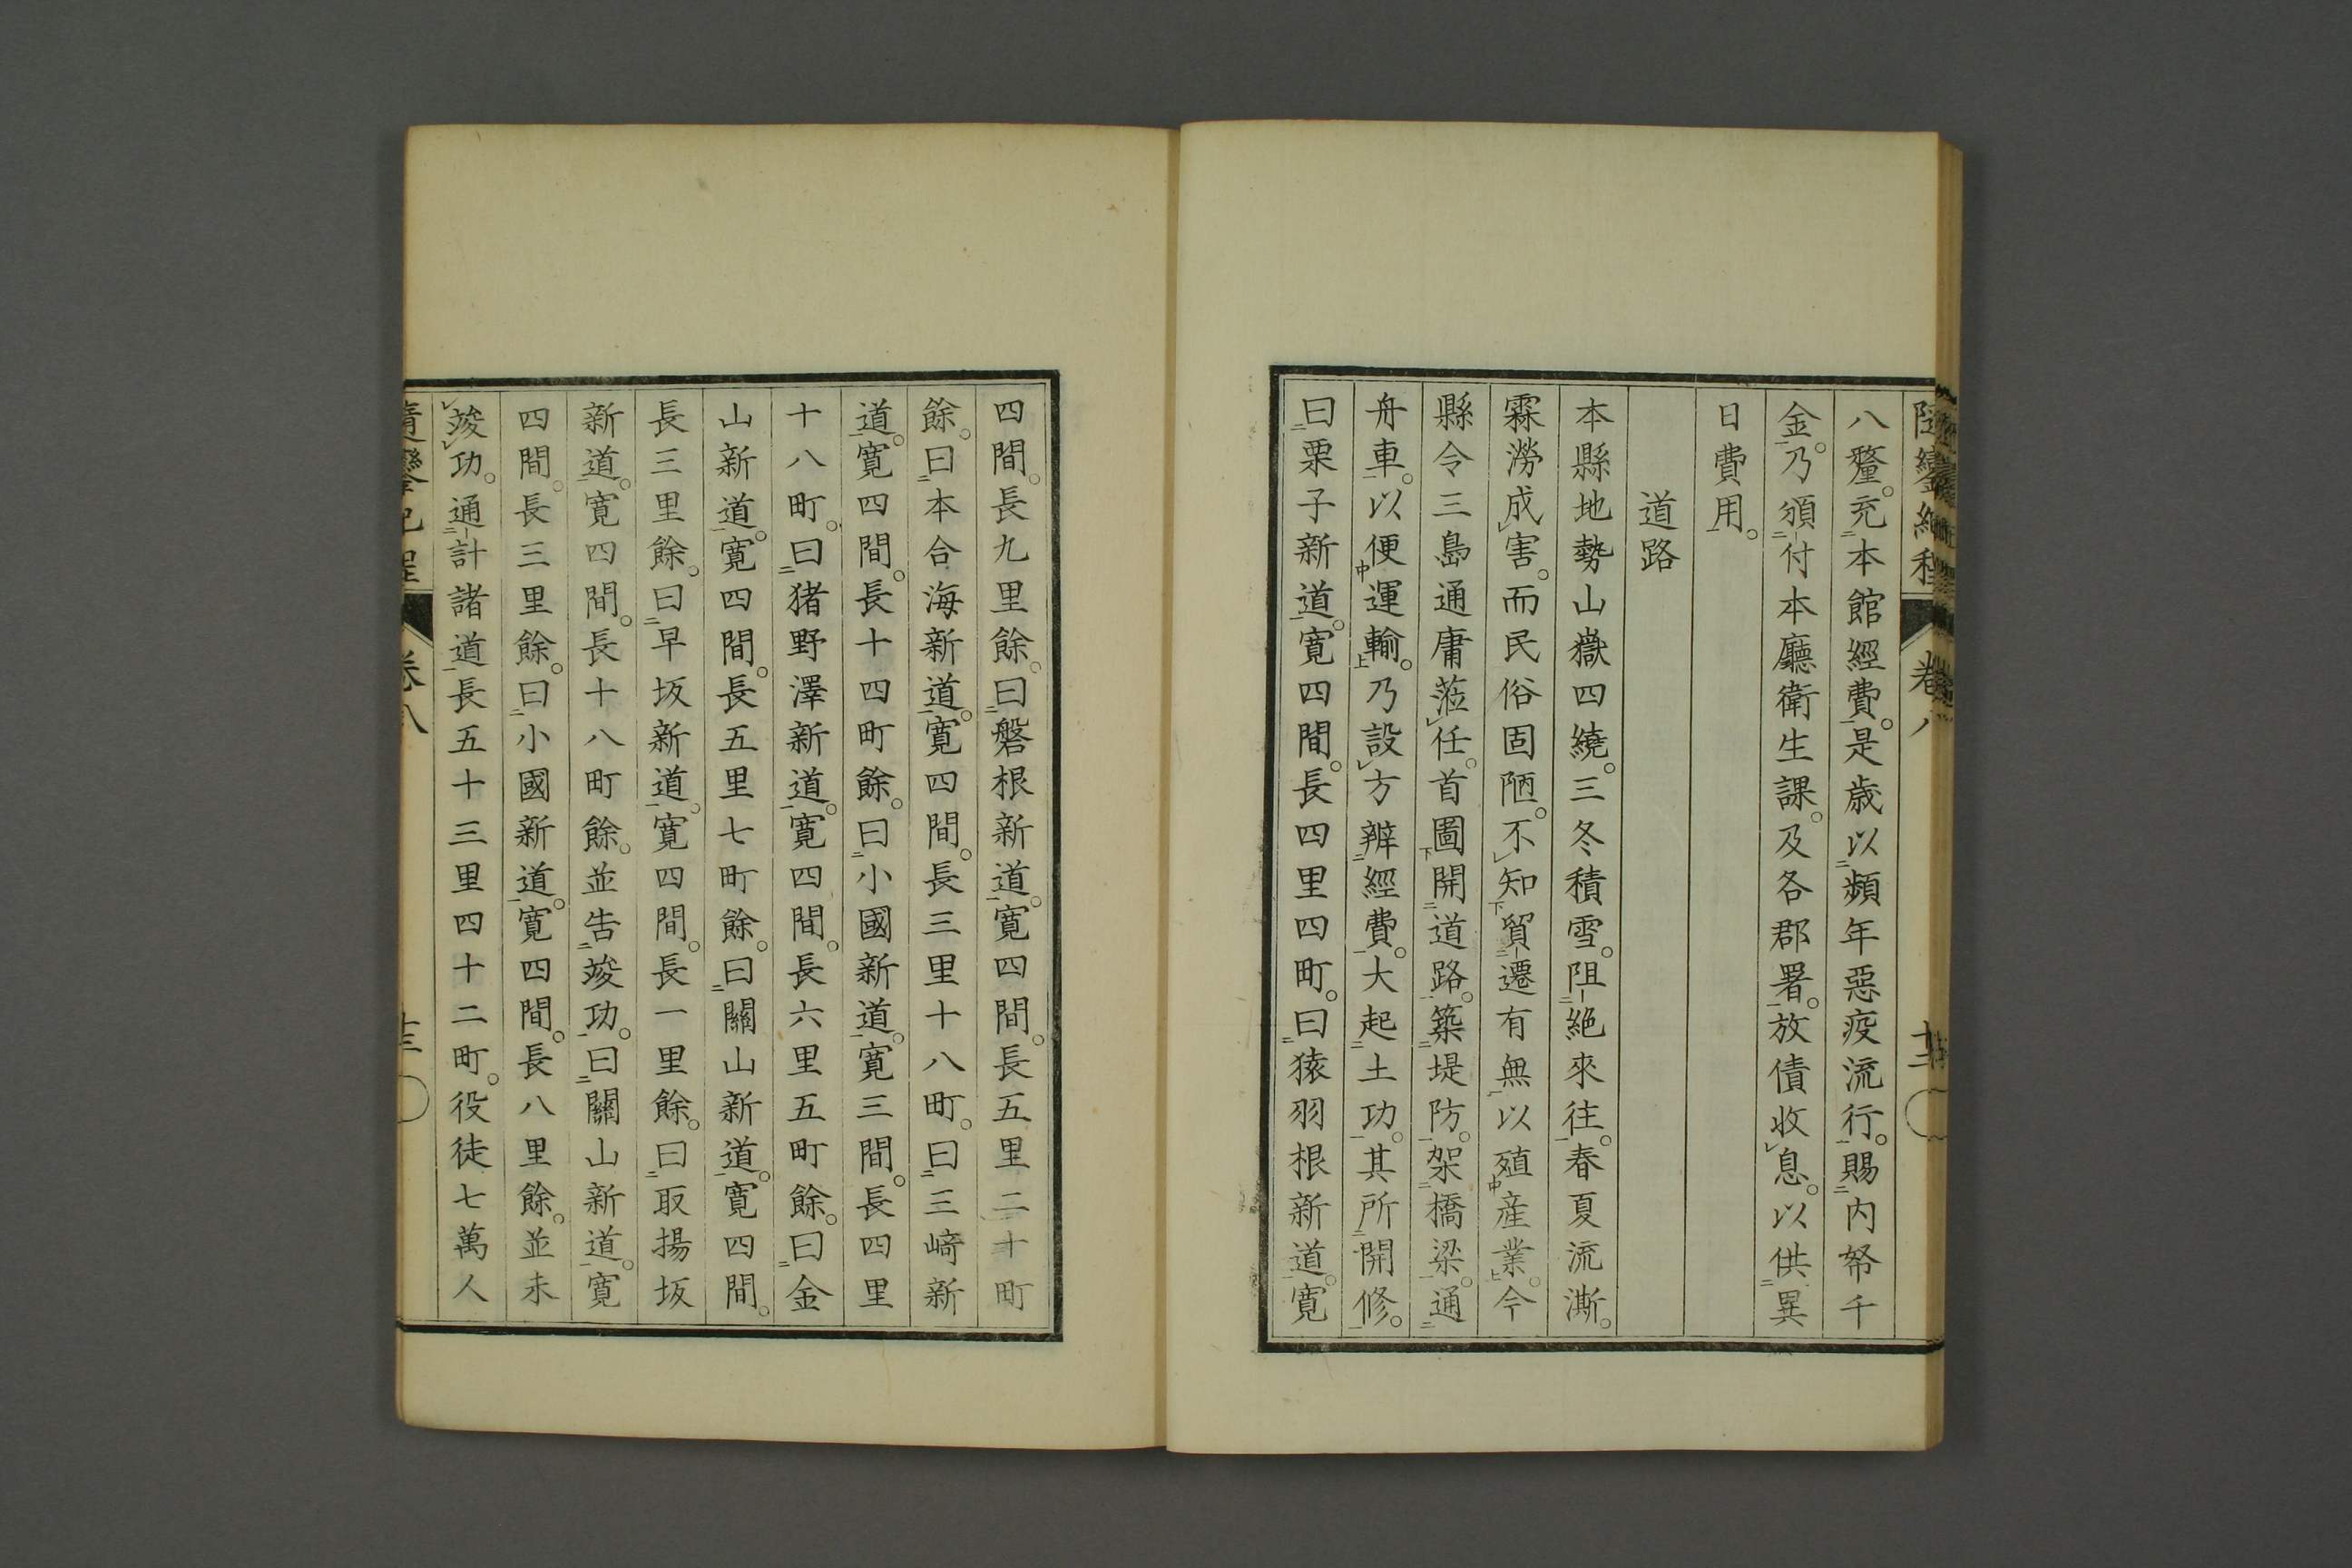 八釐。充本館經費。是歳以頻年惡疫流行。賜内帑千
金。乃頒付本廳衛生課。及各郡署。放債收息。以供異
日費用。
道路
本縣地勢山嶽四繞。三冬積雪。阻絶來往。春夏流澌。
霖澇成害。而民俗固陋。不知貿遷有無。以殖産業。今
縣令三島通庸蒞任。首圖開道路。築堤防。架橋梁。通
舟車。以便運輸。乃設方辨經費。大起土功。其所開修。
曰栗子新道。寛四間。長四里四町。曰猿羽根新道。寛
四間。長九里餘。曰磐根新道。寛四間。長五里二十町
餘。曰本合海新道。寛四間。長三里十八町。曰三﨑新
道。寛四間。長十四町餘。曰小國新道。寛三間。長四里
十八町。曰猪野澤新道。寛四間。長六里五町餘。曰金
山新道。寛四間。長五里七町餘。曰關山新道。寛四間。
長三里餘。曰早坂新道。寛四間。長一里餘。曰取揚坂
新道。寛四間。長十八町餘。並告竣功。曰關山新道。寛
四間。長三里餘。曰小國新道。寛四間。長八里餘。並未
竣功。通計諸道長五十三里四十二町。役徒七萬人
卷八